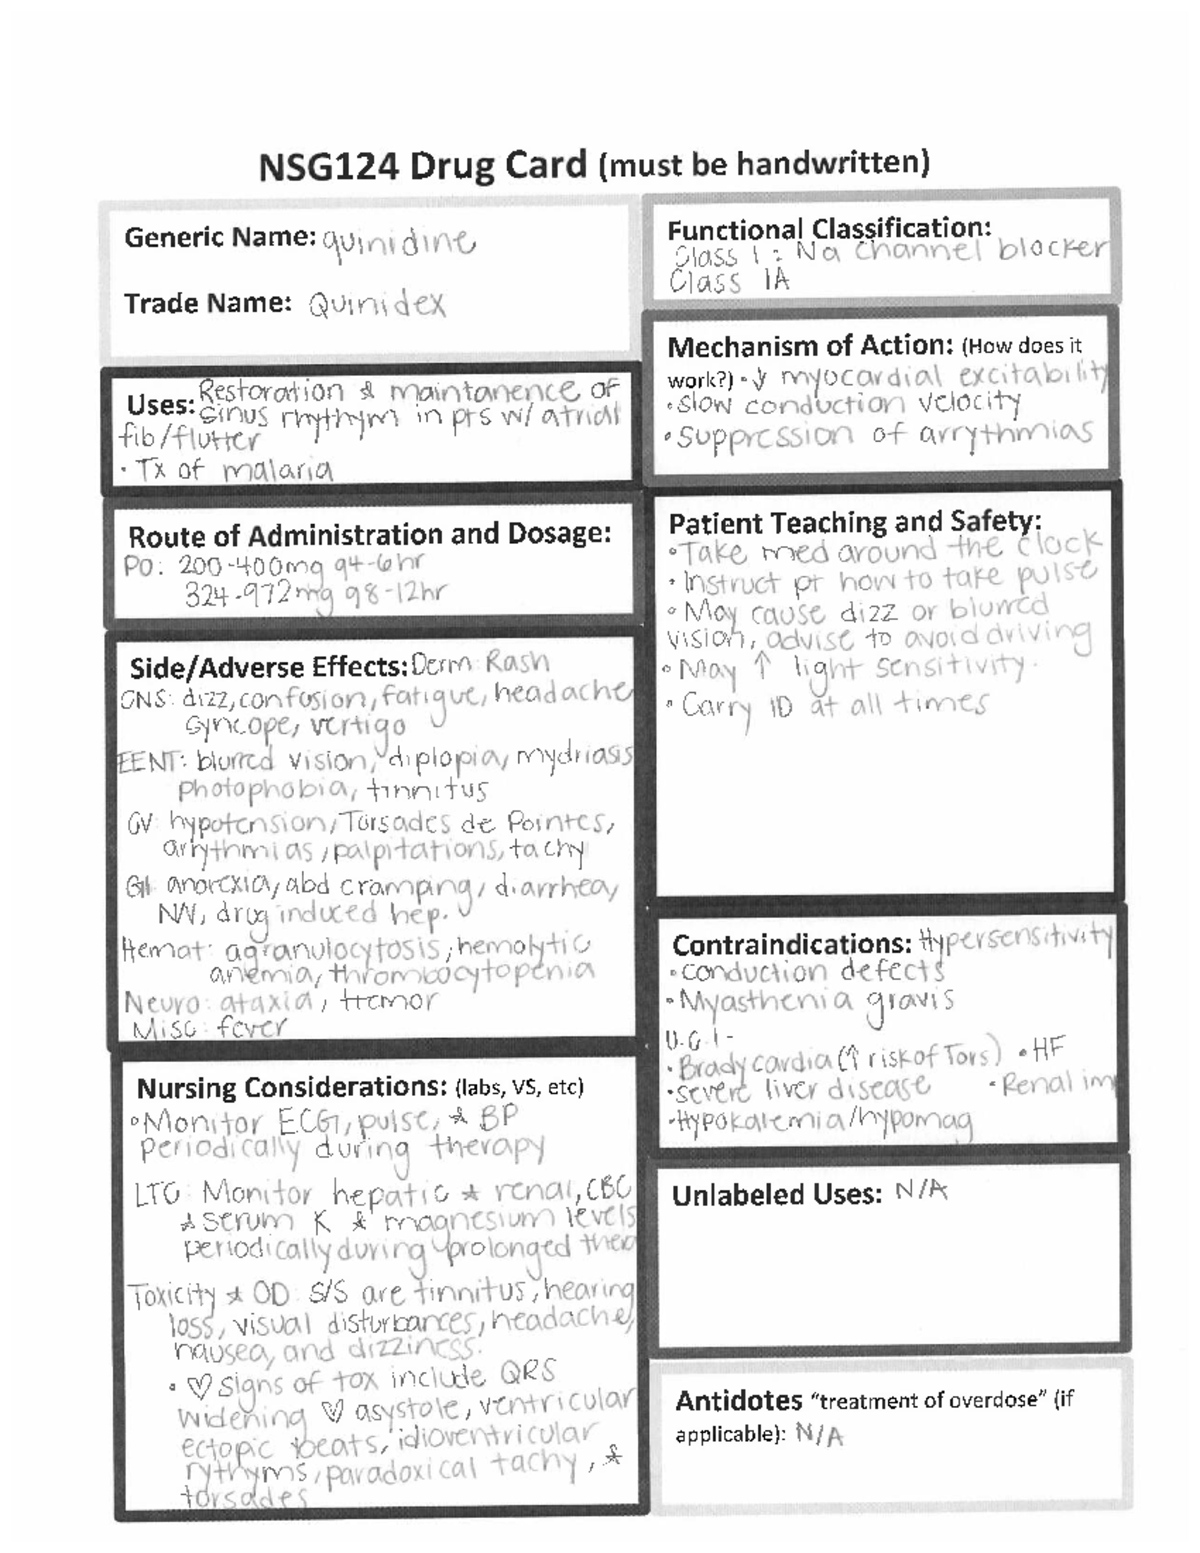 NSG124 Drug Card (must be handwritten)
Generic Name: quinidine
Trade Name: Quinidex
Uses: Restoration & maintanence of
sinus rhythym in pts w/ atrial
fib/flutter
• Tx of malaria
Route of Administration and Dosage:
PO: 200-400mg q4-6hr
324-972mg q8-12hr
Side/Adverse Effects: Derm: Rash
CNS: dizz, confusion, fatigue, headache
syncope, vertigo
EENT: blurred vision, diplopia, mydriasis
photophobia, tinnitus
CV: hypotension, Torsades de Pointes,
arrythmias, palpitations, tachy
GI: anorexia, abd cramping, diarrhea,
N/V, drug induced hep.
Hemat: agranulocytosis, hemolytic
anemia, thrombocytopenia
Neuro: ataxia, tremor
Misc: fever
Nursing Considerations: (labs, VS, etc)
• Monitor ECG, pulse, & BP
periodically during therapy
LTC: Monitor hepatic & renal, CBC
& serum K & magnesium levels
periodically during prolonged thera
Toxicity & OD: S/S are tinnitus, hearing
loss, visual disturbances, headache,
nausea, and dizziness.
• ♡ signs of tox include QRS
widening ♡ asystole, ventricular
ectopic beats, idioventricular
rythyms, paradoxical tachy, &
torsades
Functional Classification:
Class 1: Na channel blocker
Class 1A
Mechanism of Action: (How does it
work?) • ↓ myocardial excitability
• slow conduction velocity
• suppression of arrythmias
Patient Teaching and Safety:
• Take med around the clock
• Instruct pt how to take pulse
• May cause dizz or blurred
vision, advise to avoid driving
• May ↑ light sensitivity.
• Carry ID at all times
Contraindications: Hypersensitivity
• conduction defects
• Myasthenia gravis
U.C.I-
• Bradycardia (↑ risk of Tors) • HF
• severe liver disease • Renal im
• Hypokalemia/hypomag
Unlabeled Uses: N/A
Antidotes "treatment of overdose" (if
applicable): N/A